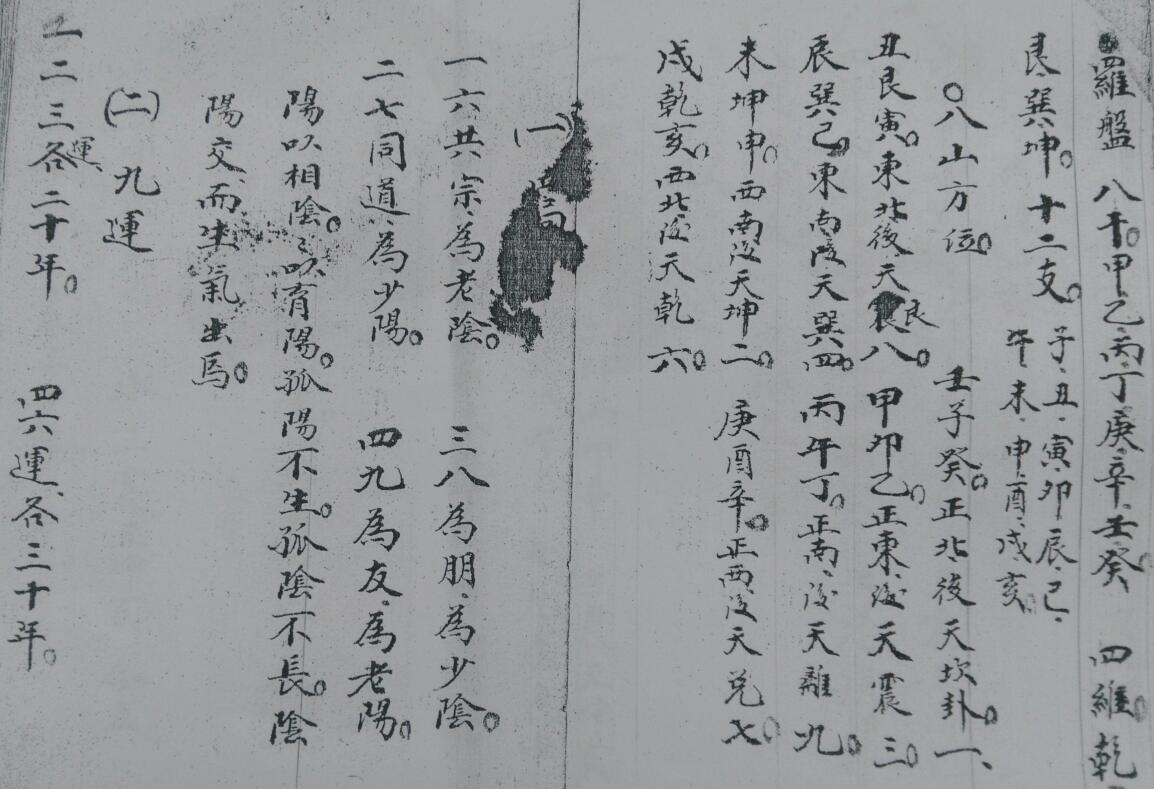 四羅盤 八干。甲、乙、丙、丁、庚、辛、壬、癸 四維。乾
艮、巽、坤。十二支。子、丑、寅、卯、辰、巳、
午、未、申、酉、戌、亥
〇八山方位。 壬子癸。正北後天坎卦。一、
丑艮寅。東北後天艮八。甲卯乙。正東、後天震三。
辰巽巳。東南後天巽四。丙午丁。正南、後天離九。
未坤申。西南後天坤二。庚酉辛。正西、後天兌七。
戌乾亥。西北後天乾六。
(一)
一六共宗、為老陰。 三八為朋、為少陰。
二七同道、為少陽。 四九為友、為老陽。
陽以相陰。陰以育陽。孤陽不生。孤陰不長。陰
陽交、而生氣出焉。
(二) 九運
一二三運、各二十年。 四六運、各三十年。